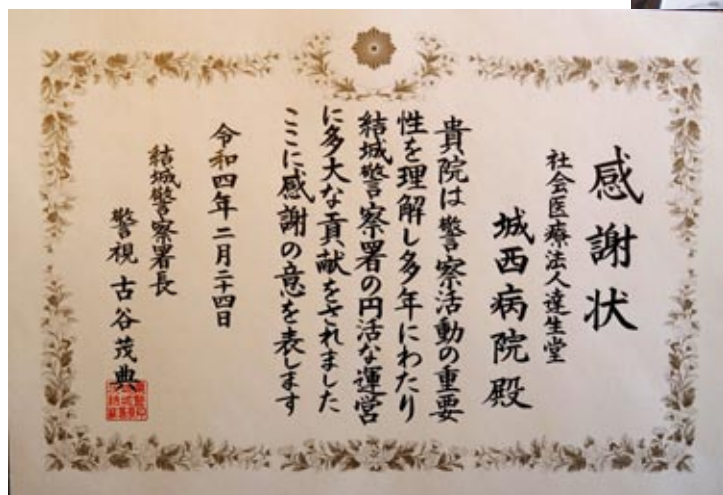 感謝状
社会医療法人達生堂
城西病院殿
貴院は警察活動の重要
性を理解し多年にわたり
結城警察署の円活な運営
に多大な貢献をされました
ここに感謝の意を表します
令和四年二月二十四日
結城警察署長
警視 古谷茂典